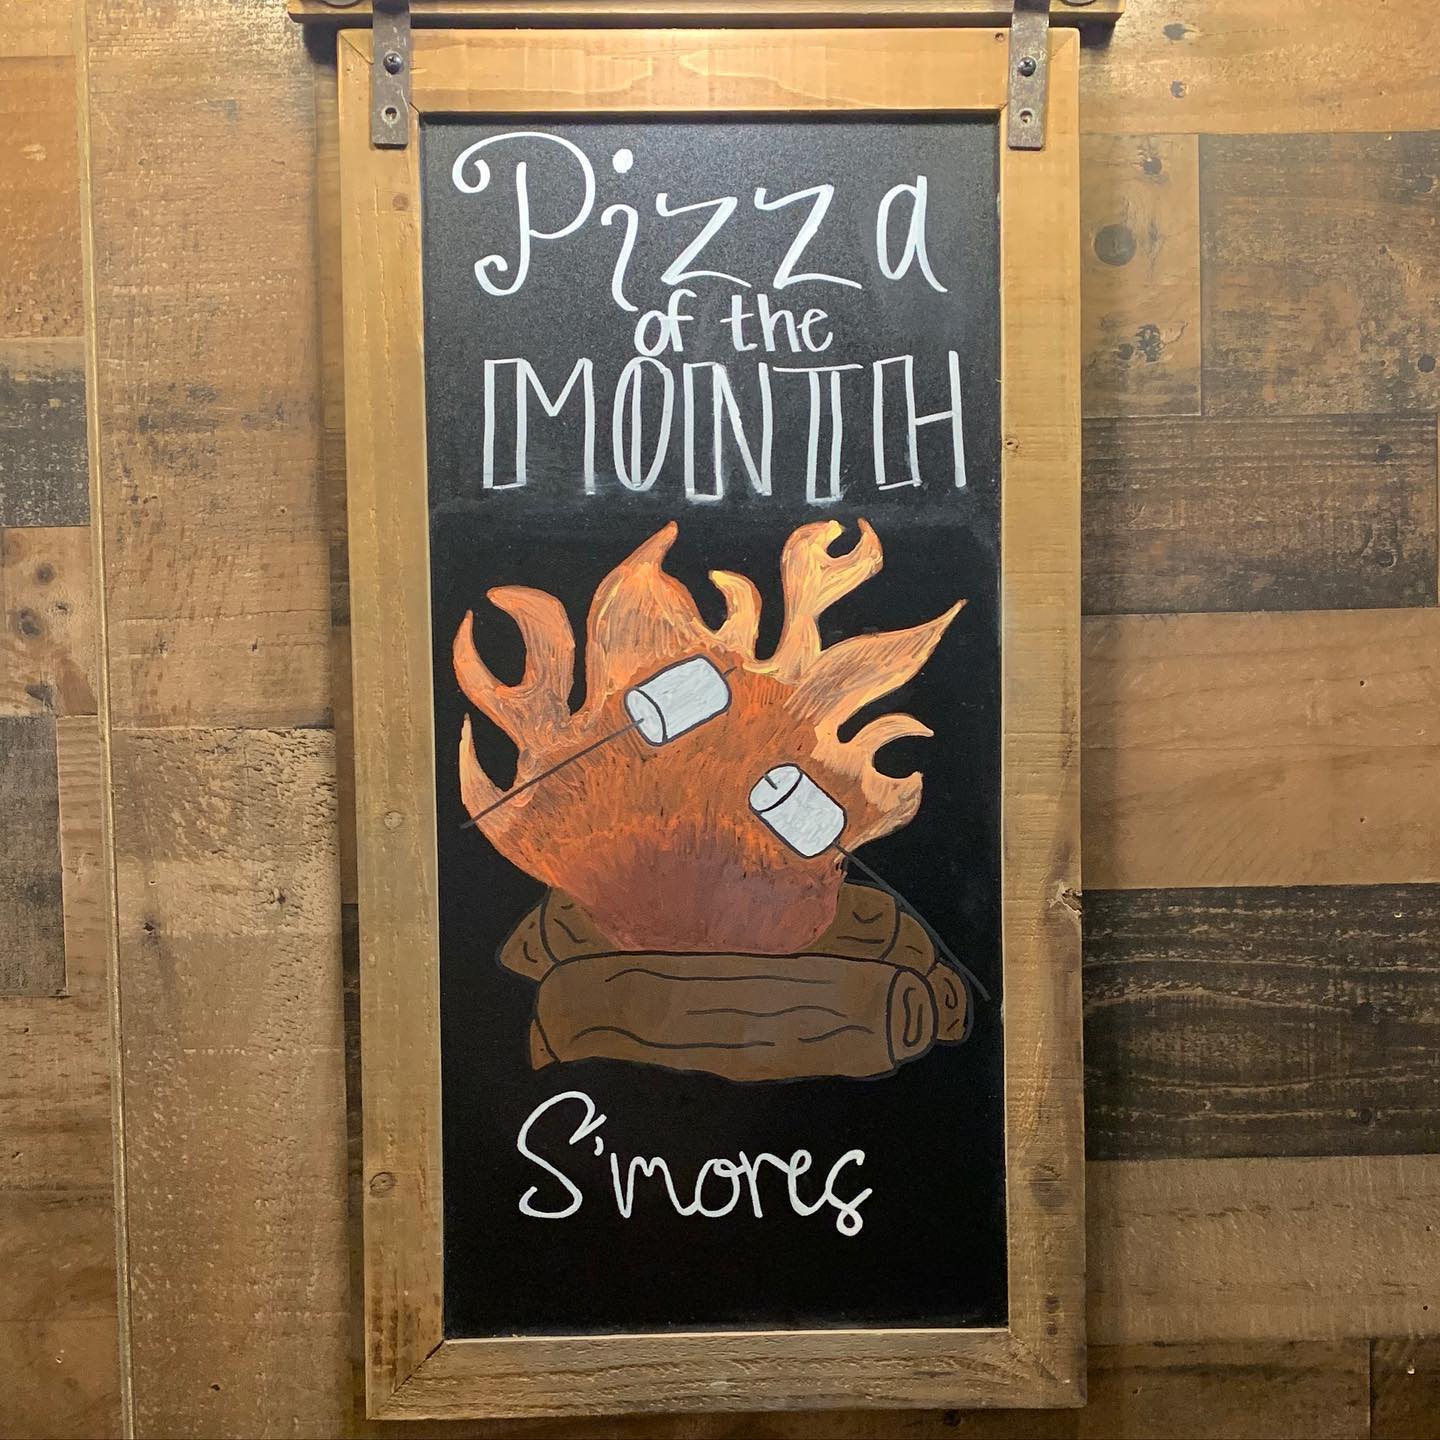 Pizza
of the
MONTH
S'mores